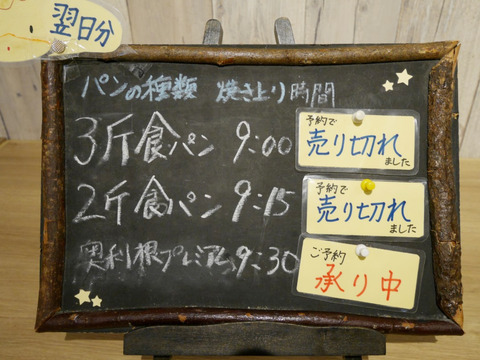 翌日分
パンの種類 焼き上り時間
3斤食パン 9:00
予約で
売り切れ
ました
2斤食パン 9:15
予約で
売り切れ
ました
奥利根プレミアム9:30
ご予約
承り中